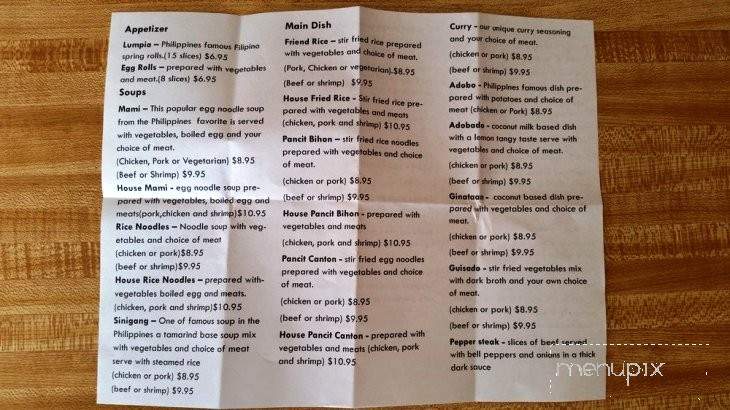 Appetizer
Lumpia – Philippines famous Filipino
spring rolls.(15 slices) $6.95
Egg Rolls – prepared with vegetables
and meat.(8 slices) $6.95
Soups
Mami – This popular egg noodle soup
from the Philippines favorite is served
with vegetables, boiled egg and your
choice of meat.
(Chicken, Pork or Vegetarian) $8.95
(Beef or Shrimp) $9.95
House Mami - egg noodle soup pre-
pared with vegetables, boiled egg and
meats(pork,chicken and shrimp)$10.95
Rice Noodles – Noodle soup with veg-
etables and choice of meat
(chicken or pork)$8.95
(beef or shrimp)$9.95
House Rice Noodles – prepared with-
vegetables boiled egg and meats.
(chicken, pork and shrimp)$10.95
Sinigang – One of famous soup in the
Philippines a tamarind base soup mix
with vegetables and choice of meat
serve with steamed rice
(chicken or pork) $8.95
(beef or shrimp) $9.95
Main Dish
Friend Rice – stir fried rice prepared
with vegetables and choice of meat.
(Pork, Chicken or vegetarian).$8.95
(Beef or shrimp) $9.95
House Fried Rice - Stir fried rice pre-
pared with vegetables and meats
(chicken, pork and shrimp) $10.95
Pancit Bihon – stir fried rice noodles
prepared with vegetables and choice
of meat.
(chicken or pork) $8.95
(beef or shrimp) $9.95
House Pancit Bihon - prepared with
vegetables and meats
(chicken, pork and shrimp) $10.95
Pancit Canton - stir fried egg noodles
prepared with vegetables and choice
of meat.
(chicken or pork) $8.95
(beef or shrimp) $9.95
House Pancit Canton - prepared with
vegetables and meats (chicken, pork
and shrimp) $10.95
Curry - our unique curry seasoning
and your choice of meat.
(chicken or pork) $8.95
(beef or shrimp) $9.95
Adobo - Philippines famous dish pre-
pared with potatoes and choice of
meat (chicken or Pork) $8.95
Adobada - coconut milk based dish
with a lemon tangy taste serve with
vegetables and choice of meat.
(chicken or pork) $8.95
(beef or shrimp) $9.95
Ginataan - coconut based dish pre-
pared with vegetables and choice of
meat.
(chicken or pork) $8.95
(beef or shrimp) $9.95
Guisado - stir fried vegetables mix
with dark broth and your own choice
of meat.
(chicken or pork) $8.95
(beef or shrimp) $9.95
Pepper steak - slices of beef served
with bell peppers and onions in a thick
dark sauce
menupix